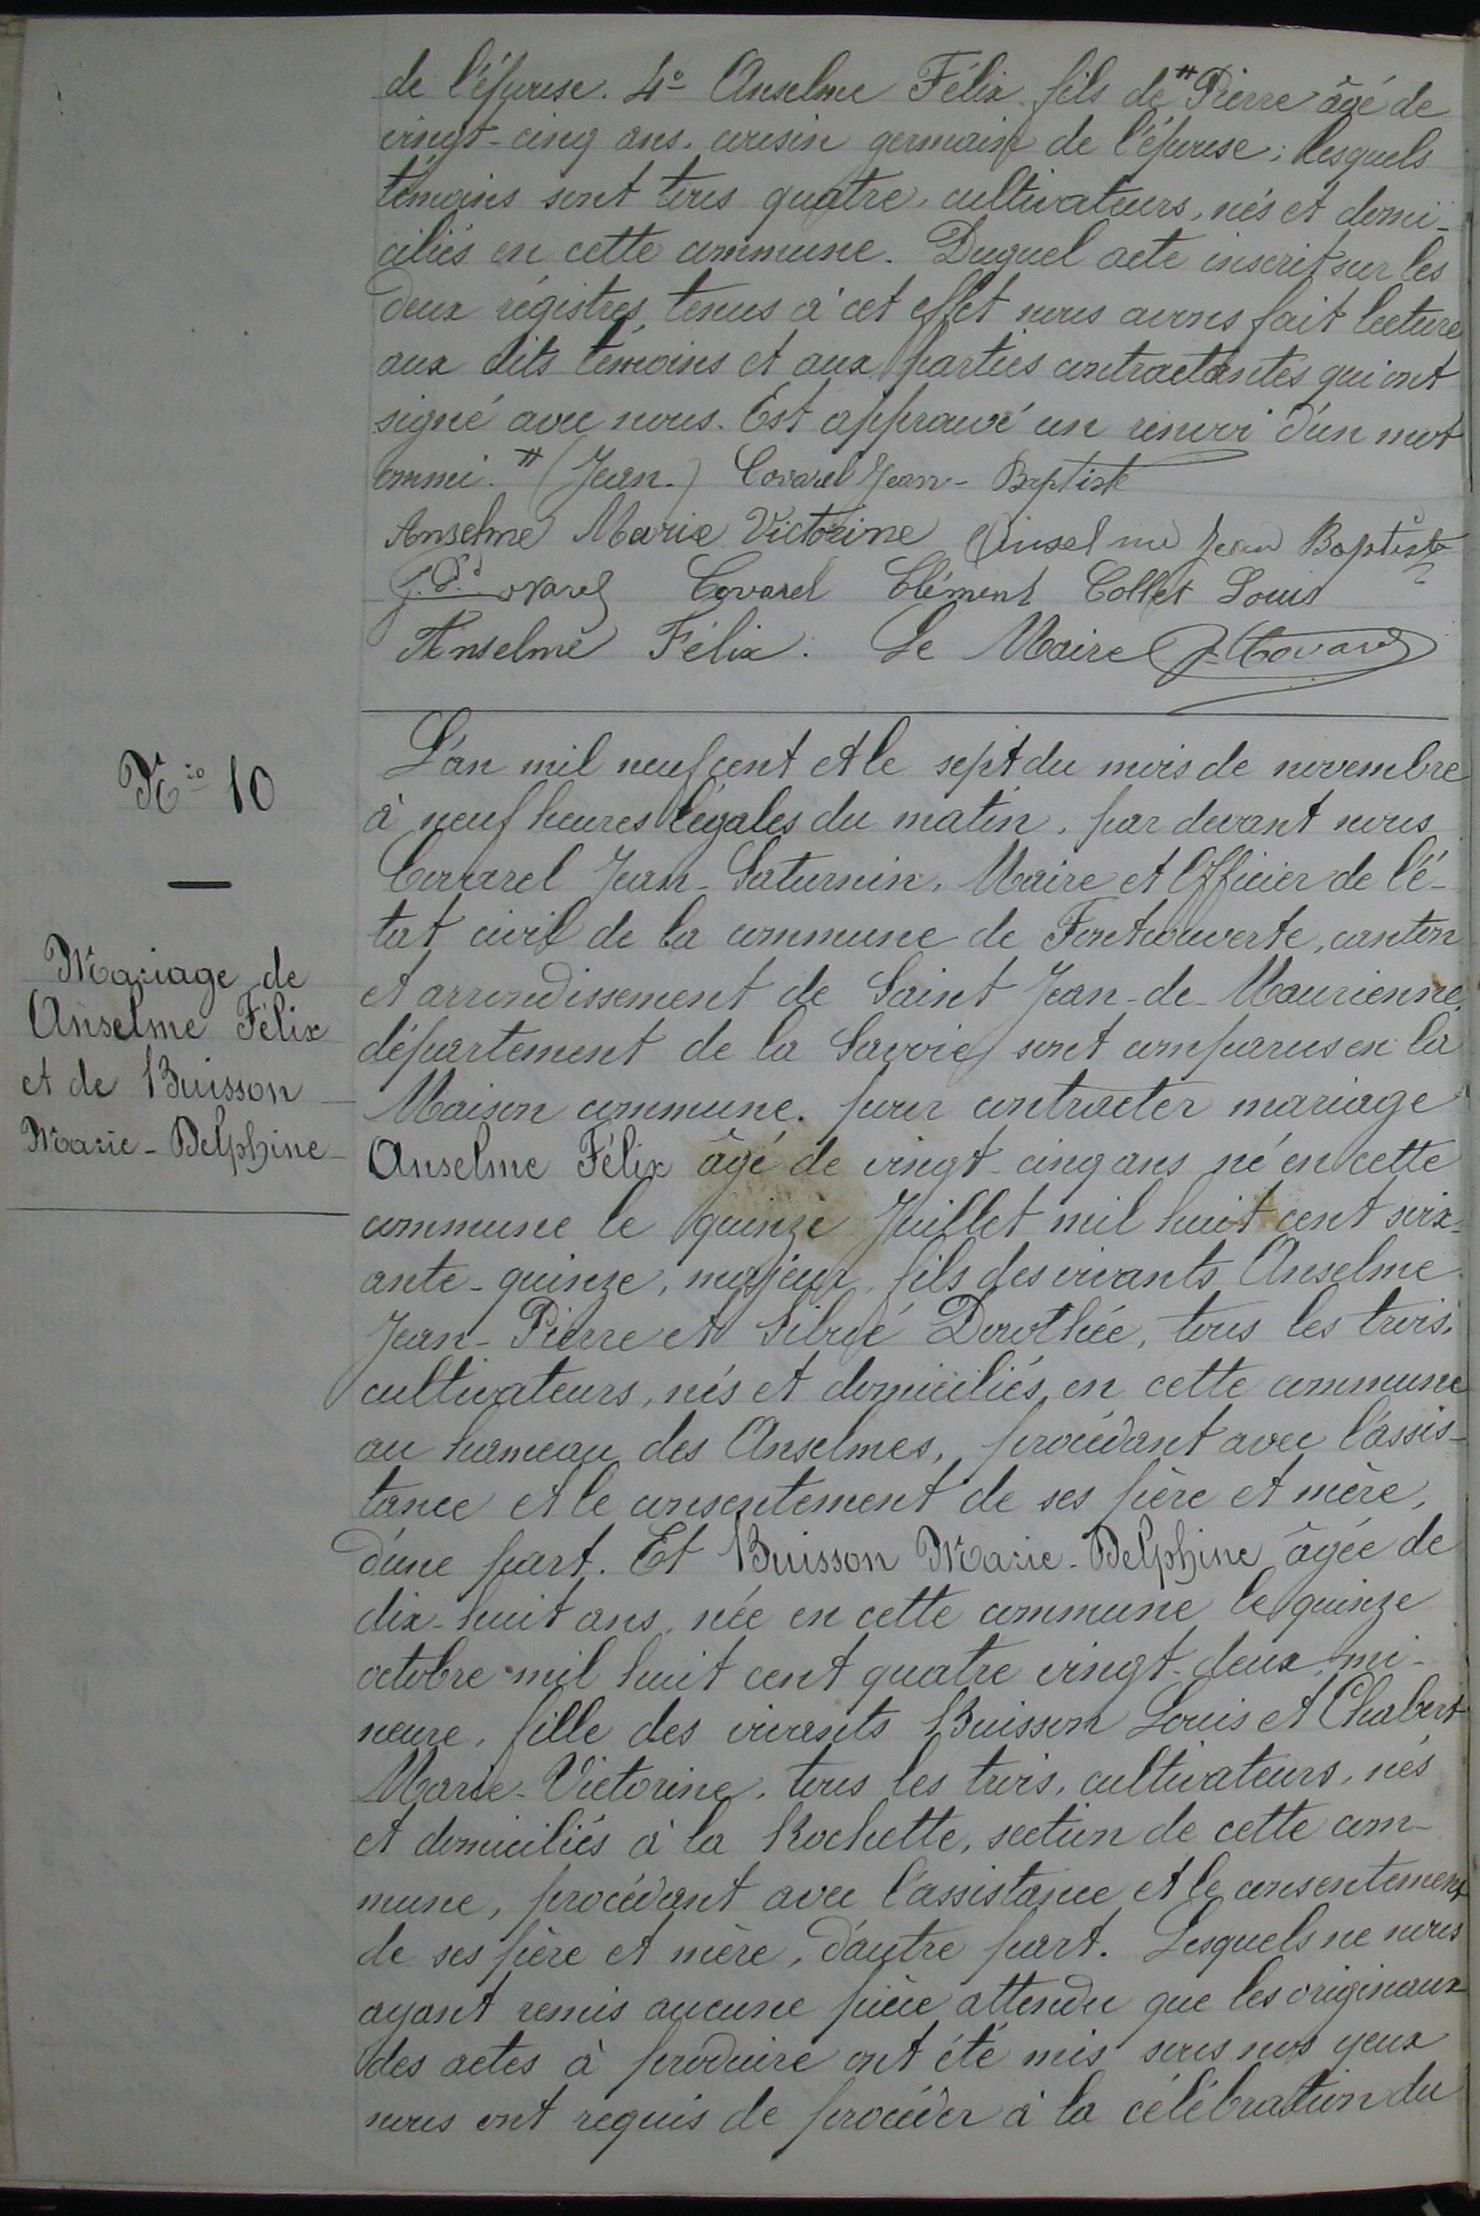 de l'épouse. 4° Anselme Félix fils de # Pierre âgé de
vingt-cinq ans, cousin germain de l'épouse; lesquels
témoins sont tous quatre, cultivateurs, nés et domi-
ciliés en cette commune. Duquel acte inscrit sur les
deux régistres tenus à cet effet nous avons fait lecture
aux dits témoins et aux parties contractantes qui ont
signé avec nous. Est approuvé un renvoi d'un mot
ommi. # (Jean.) Covarel Jean-Baptiste
Anselme Marie Victorine Anselme Jean Baptiste
Covarel Clément Collet Louis
Anselme Félix. Le Maire J. Covarel
N° 10
Mariage de
Anselme Félix
et de Buisson
Marie-Delphine
L'an mil neuf cent et le sept du mois de novembre
à neuf heures légales du matin, par devant nous
Covarel Jean-Saturnin, Maire et Officier de l'é-
tat civil de la commune de Fontcouverte, canton
et arrondissement de Saint Jean-de-Maurienne,
département de la Savoie, sont comparus en la
Maison commune, pour contracter mariage
Anselme Félix âgé de vingt-cinq ans né en cette
commune le quinze Juillet mil huit cent soix-
ante-quinze, majeur, fils des vivants Anselme
Jean-Pierre et Sibué Dorothée, tous les trois,
cultivateurs, nés et domiciliés en cette commune
au hameau des Anselmes, procédant avec l'assis-
tance et le consentement de ses père et mère,
d'une part. Et Buisson Marie-Delphine âgée de
dix-huit ans, née en cette commune le quinze
octobre mil huit cent quatre vingt-deux, mi-
neure, fille des vivants Buisson Louis et Chabert
Marie-Victorine, tous les trois, cultivateurs, nés
et domiciliés à la Rochette, section de cette com-
mune, procédant avec l'assistance et le consentement
de ses père et mère, d'autre part. Lesquels ne nous
ayant remis aucune pièce attendu que les originaux
des actes à produire ont été mis sous nos yeux
nous ont requis de procéder à la célébration du